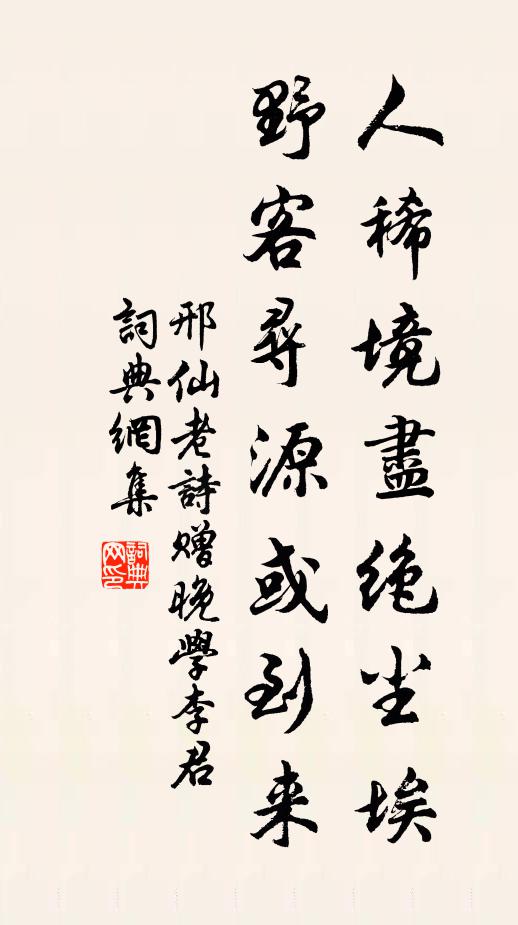 人稀境盡絶尘埃
野客尋源或到来
邢仙老詩赠晚學李君
詞典網集
詞典网印